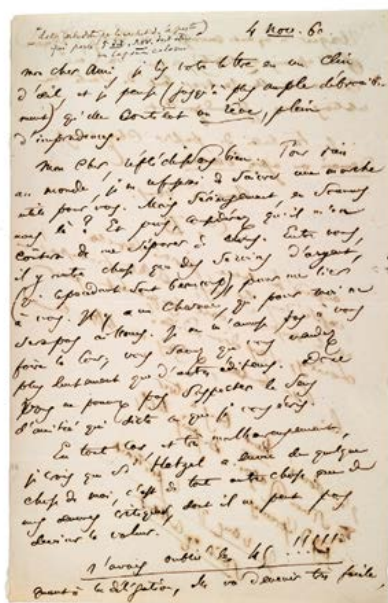 4 Nov. 60.
mon cher Ami, je lis votre lettre en un clin
d'œil et je pense (jusqu'à plus ample débrouille-
ment) qu'elle contient un rêve, plein
d'imprudences.
Mon cher, réfléchissons bien. Pour rien
au monde, je ne refuserai de suivre une marche
utile pour vous. Mais sérieusement, en sommes
nous là ? Et puis, considérez qu'il m'en
coûtera de me séparer de vous. Entre nous,
il y a autre chose que des services d'argent,
(qui cependant sont beaucoup) pour me lier
à vous. Il y a un charme, qui pour moi ne
sera pas ailleurs. Je ne m'amuse pas à vous
faire la cour, vous savez que vous vendez
plus lentement que d'autres éditeurs. Donc
vous ne pouvez pas suspecter le sens
d'amitié qui dicte ce que je vous écris.
En tout cas, et très malheureusement,
je crois que si Hetzel a envie de quelque
chose de moi, c'est de tout autre chose que de
mes œuvres critiques, dont il ne peut pas
deviner la valeur.
J'avais oublié les 45 !!!!!
quant à la délégation, elle va devenir très facile,